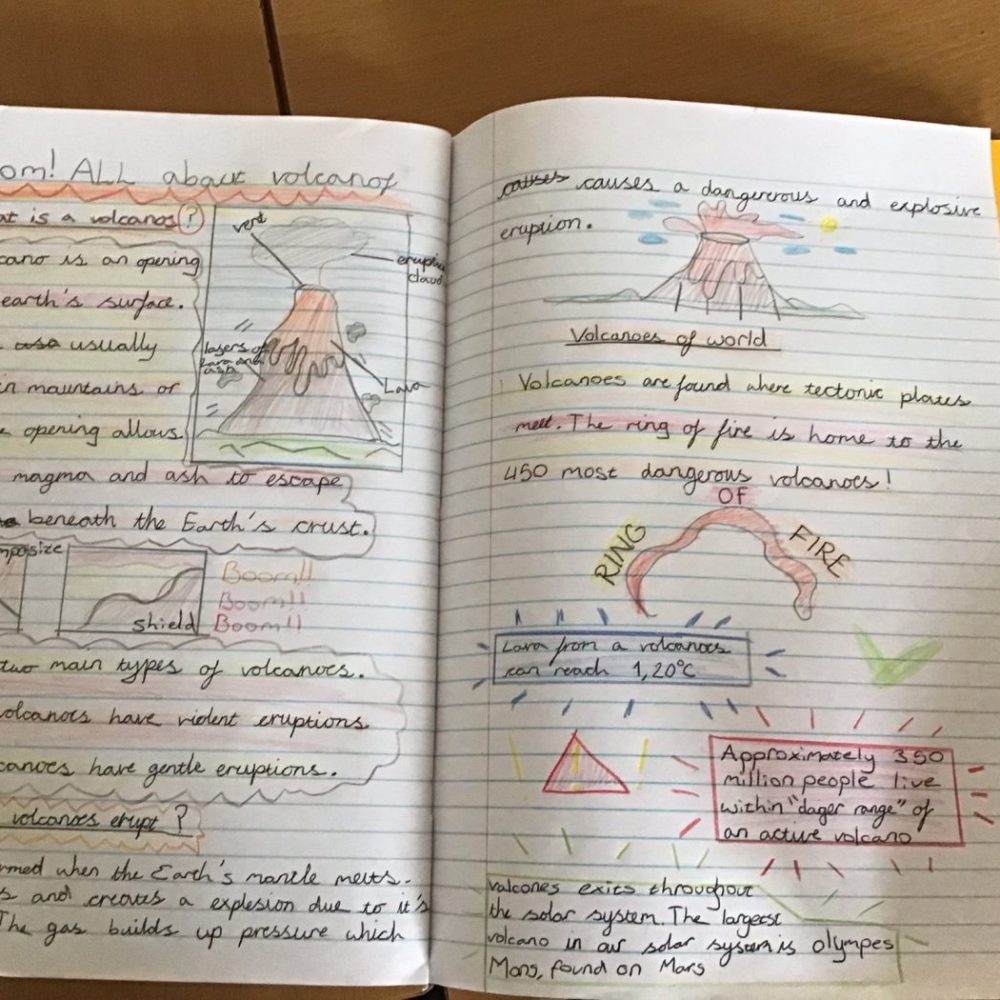 om! ALL about volcanof
at is a volcanos?
cano is an opening
earth's surface.
usually
in mountains or
opening allows
magma and ash to escape
beneath the Earth's crust.
vent
eruption cloud
layers of
lava and
ash
Lava
mposize
shield
Boom!!
Boom!!
Boom!!
two main types of volcanoes.
olcanoes have violent eruptions
canoes have gentle eruptions.
volcanoes erupt?
rmed when the Earth's mantle melts.
s and creates a explesion due to it's
The gas builds up pressure which
causes causes a dangererous and explosive
eruption.
Volcanoes of world
Volcanoes are found where tectonic plates
meet. The ring of fire is home to the
450 most dangerous volcanoes!
RING OF FIRE
Lava from a volcanoes
can reach 1,20°C
Approximately 350
million people live
within "dager range" of
an active volcano
valcones exits throughout
the solar system. The largest
volcano in our solar system is olympes
Mons, found on Mars